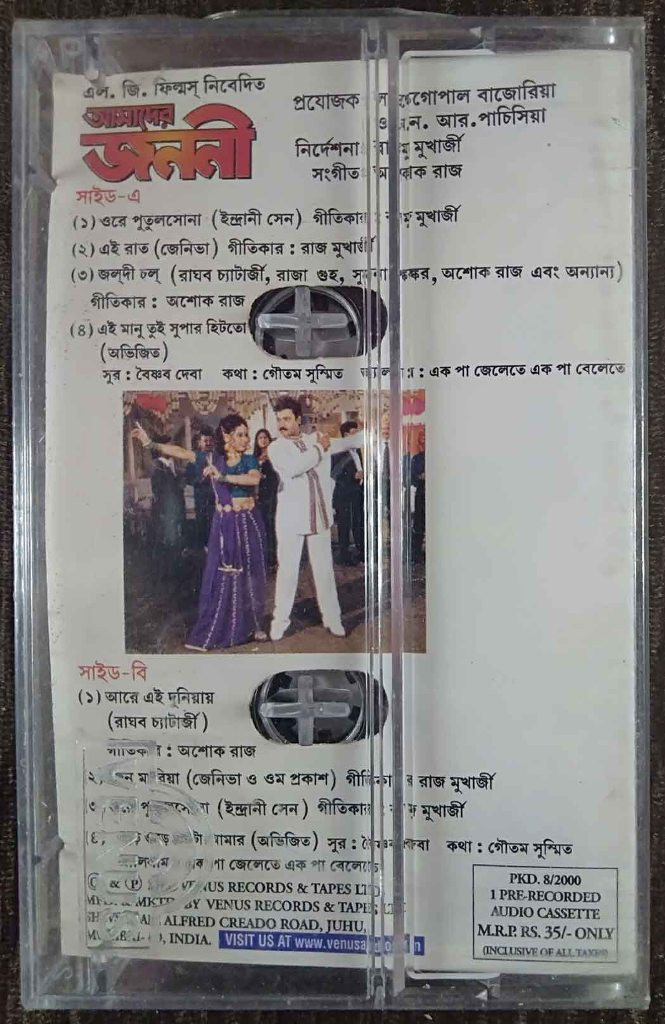 এল. জি. ফিল্মস্ নিবেদিত
আমাদের
জননী
প্রযোজক গোপাল বাজোরিয়া
ন. আর. পাচিসিয়া
নির্দেশনা: মুখার্জী
সংগীত: রাজ
সাইড-এ
(১) ওরে পুতুলসোনা (ইন্দ্রানী সেন) গীতিকার : মুখার্জী
(২) এই রাত (জেনিভা) গীতিকার : রাজ মুখার্জী
(৩) জল্দী চল্ (রাঘব চ্যাটার্জী, রাজা গুহ, অশোক রাজ এবং অন্যান্য)
গীতিকার : অশোক রাজ
(৪) এই মানু তুই সুপার হিটতো
(অভিজিত)
সুর : বৈষ্ণব দেবা কথা : গৌতম সুস্মিত : এক পা জেলেতে এক পা বেলেতে
সাইড-বি
(১) আরে এই দুনিয়ায়
(রাঘব চ্যাটার্জী)
গীতিকার : অশোক রাজ
২, (জেনিভা ও ওম প্রকাশ) রাজ মুখার্জী
৩ (ইন্দ্রানী সেন) গীতিকার মুখার্জী
(৪ (অভিজিত) সুর : কথা : গৌতম সুস্মিত
পা জেলেতে এক পা বেলেতে
& (P) VENUS RECORDS & TAPES LTD.
BY VENUS RECORDS & TAPES
ALFRED CREADO ROAD, JUHU,
INDIA. VISIT US AT
PKD. 8/2000
1 PRE-RECORDED
AUDIO CASSETTE
M.R.P. RS. 35/- ONLY
(INCLUSIVE OF ALL TAXES)